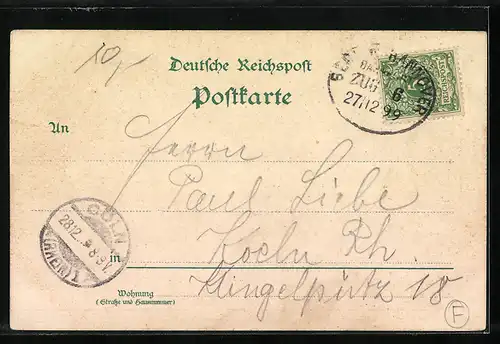 10,-
Deutsche Reichspost
Postkarte
HANNOVER
ZUG 6
27/12 99
An
Herrn
Paul Liebe
in Koeln Rh.
Klingelpütz 18
CÖLN
28.12.
(RHEIN) 1
Wohnung
(Straße und Hausnummer)
F